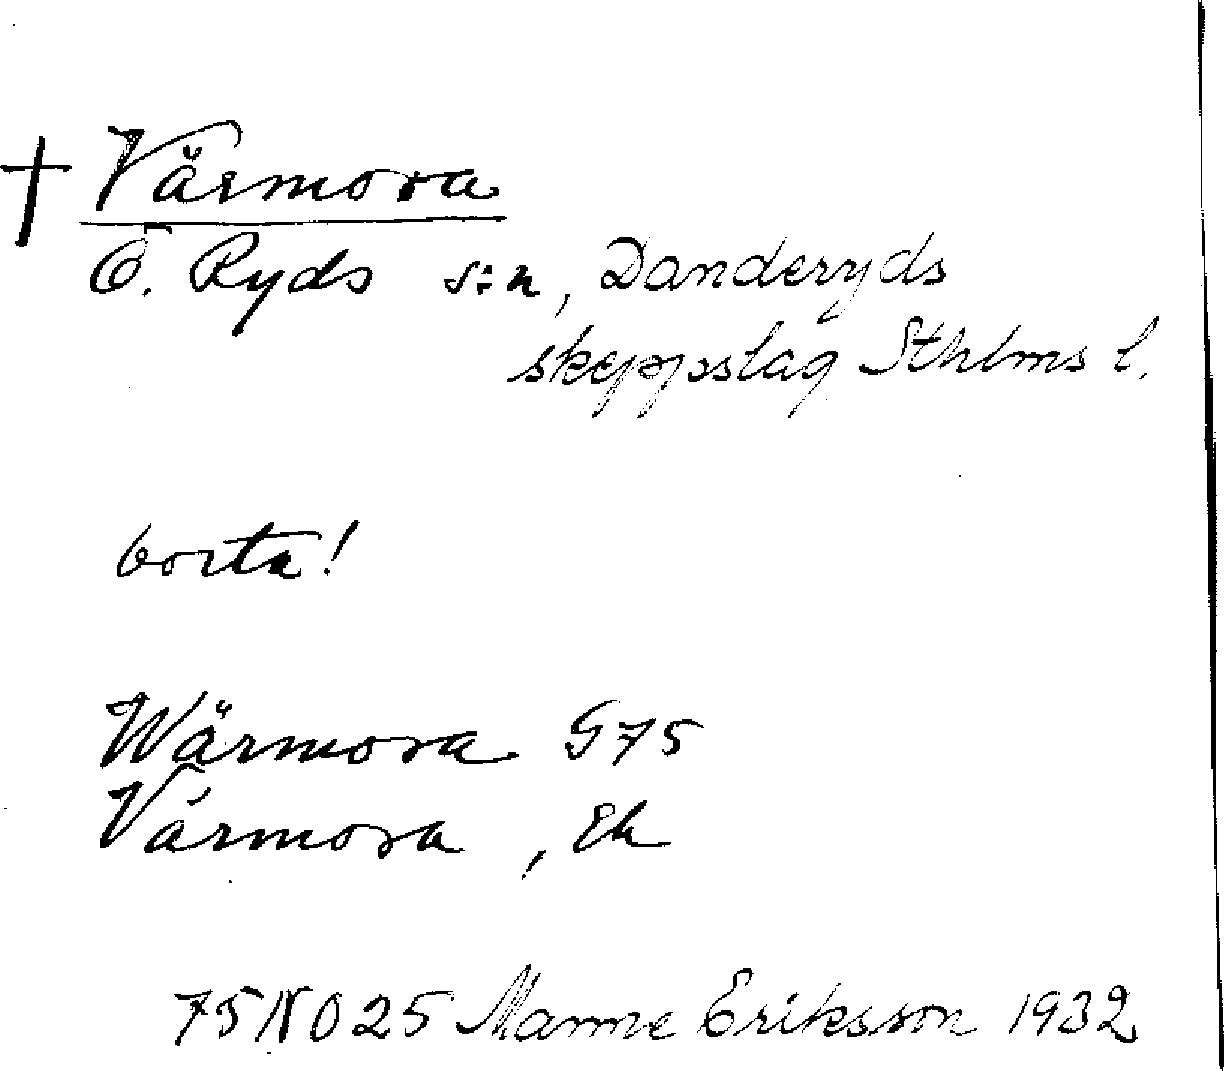 † Värmora
Ö. Ryds s:n, Danderyds
skeppslag Sthlms l.
borta!
Wärmora G75
Värmora, Ek
75 NO 25 Manne Eriksson 1932